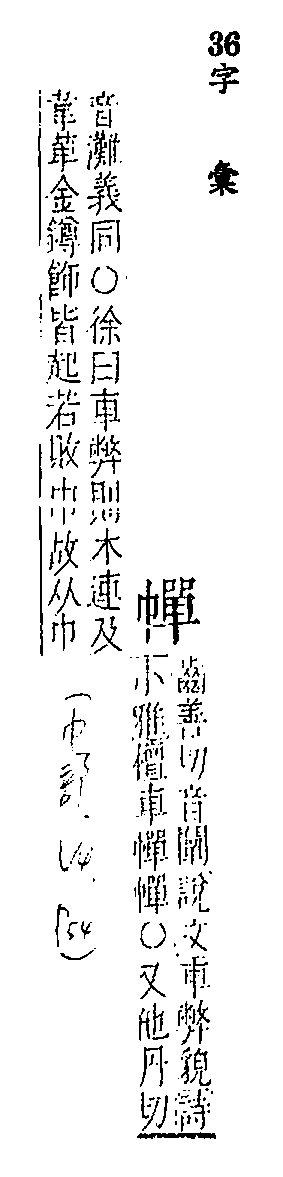 36
字彙
幝
齒善切音闡說文車弊貌詩
小雅僧車幝幝○又他丹切
音灘義同○徐曰車弊則木連及
革華金鐏飾皆起若敗巾故从巾